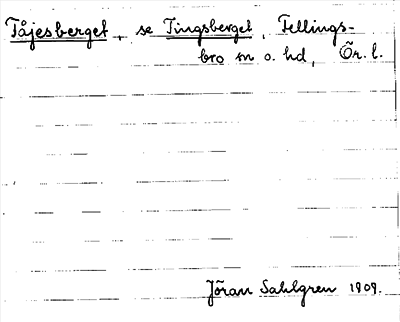 Tåjesberget, se Tingsberget, Fellings-
bro sn o. hd, Ör. l.
Jöran Sahlgren 1909.